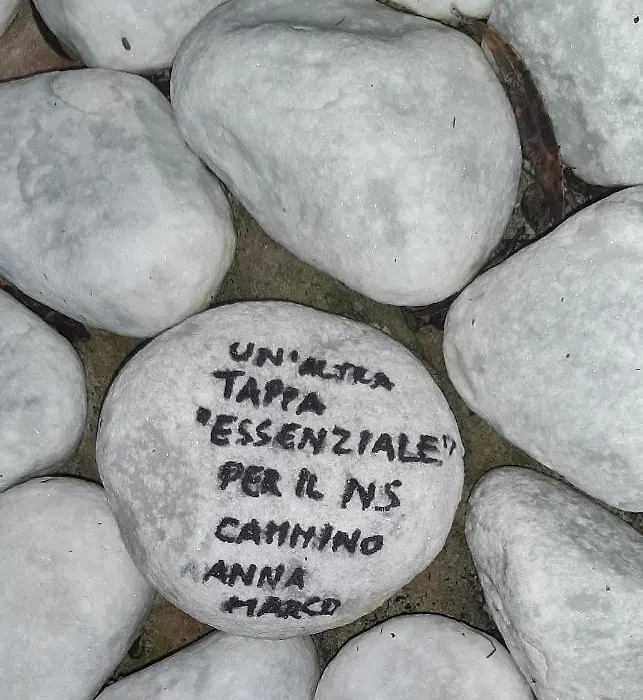 UN'ALTRA
TAPPA
"ESSENZIALE"
PER IL NS
CAMMINO
ANNA
MARCO